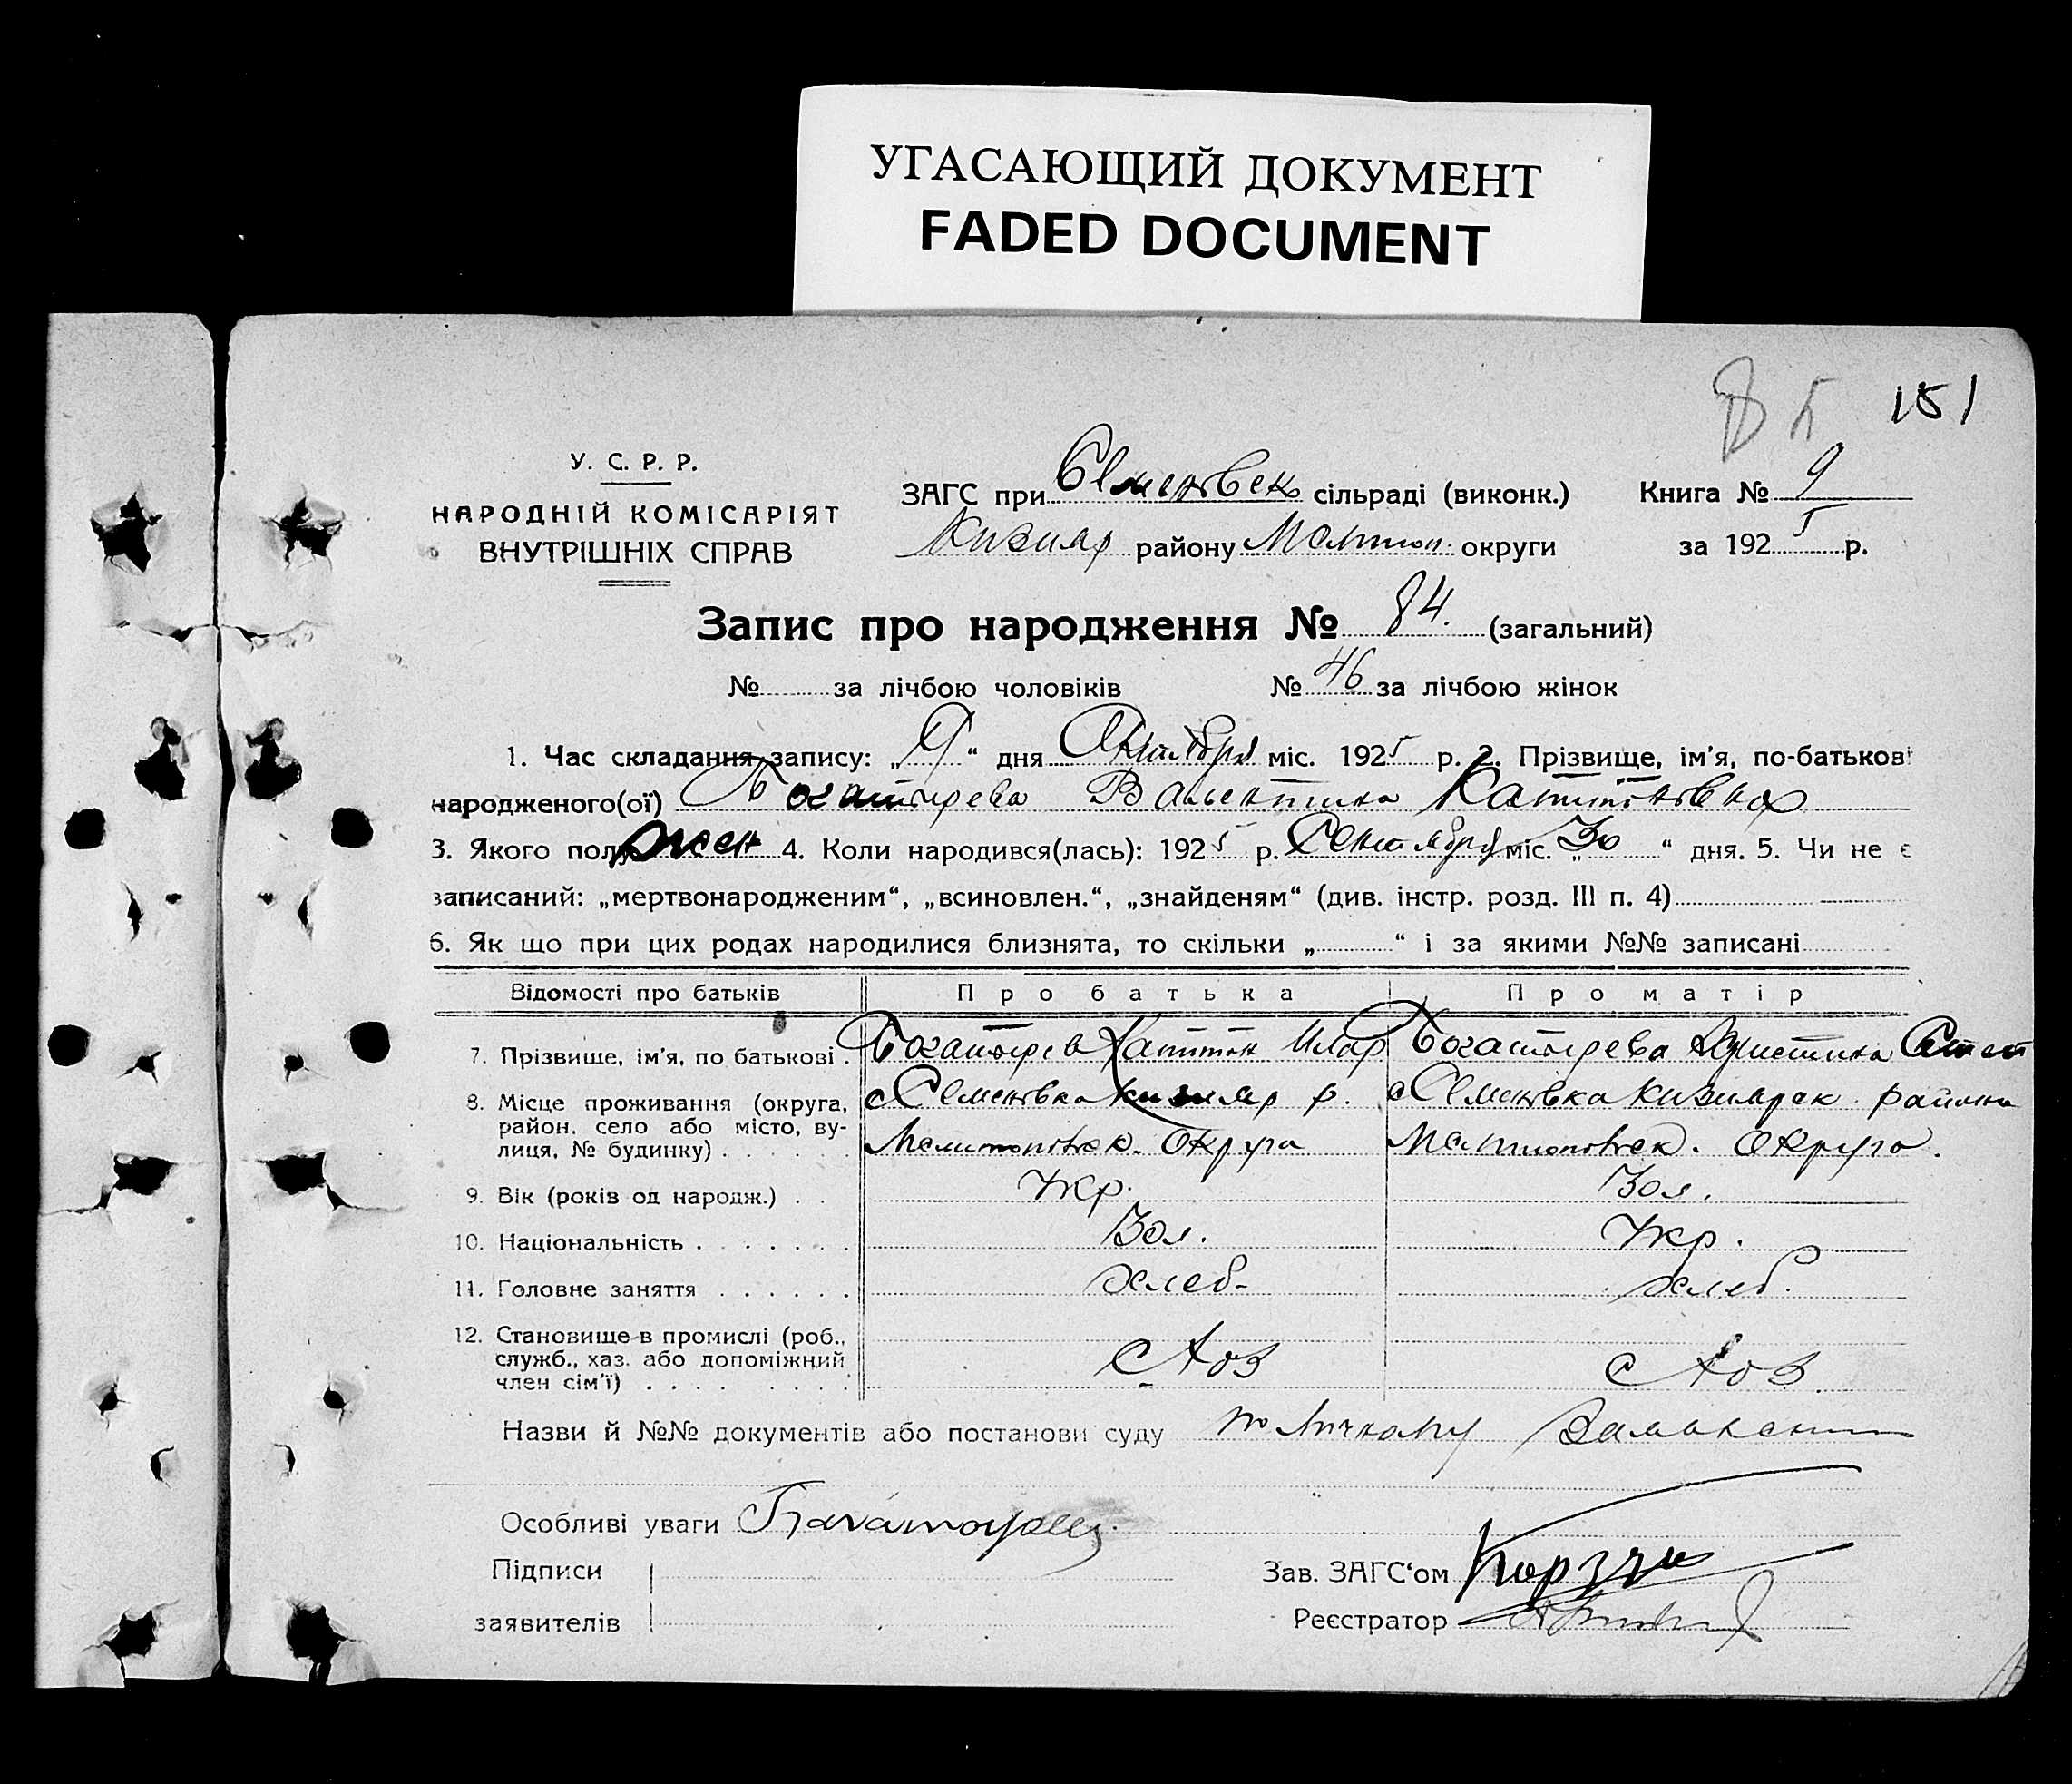 УГАСАЮЩИЙ ДОКУМЕНТ
FADED DOCUMENT
151
У. С. Р. Р.
НАРОДНІЙ КОМІСАРІЯТ
ВНУТРІШНІХ СПРАВ
ЗАГС при Семеновск сільраді (виконк.) Книга № 9
Кизияр району Мелитоп. округи за 1925 р.
Запис про народження № 84. (загальний)
№ за лічбою чоловіків № 46 за лічбою жінок
1. Час складання запису: „9“ дня Октября міс. 1925 р. 2. Прізвище, ім'я, по-батькові
народженого(ої) Богатырева Валентина Капитоновна
3. Якого полу жен 4. Коли народився(лась): 1925 р. Сентября міс. „30“ дня. 5. Чи не є
записаний: „мертвонародженим“, „всиновлен.“, „знайденям“ (див. інстр. розд. III п. 4)
6. Як що при цих родах народилися близнята, то скільки „ “ і за якими №№ записані
Відомості про батьків Про батька Про матір
7. Прізвище, ім'я, по батькові . Богатырев Капитон Илар Богатырева
8. Місце проживання (округа, с Семеновка Кизияр р. с Семеновка Кизиярск. района
район, село або місто, ву-
лиця, № будинку) . . . . . . Мелитоповск. округа Мелитоповск. округа.
9. Вік (років од народж.) . . Укр. 30 л.
10. Національність . . . . . . . Укр.
11. Головне заняття . . . . . . хлеб- хлеб.
12. Становище в промислі (роб.,
служб., хаз. або допоміжний
член сім'ї) . . . . . . . . .
Назви й №№ документів або постанови суду по личному
Особливі уваги
Підписи
заявителів
Зав. ЗАГС‘ом
Реєстратор